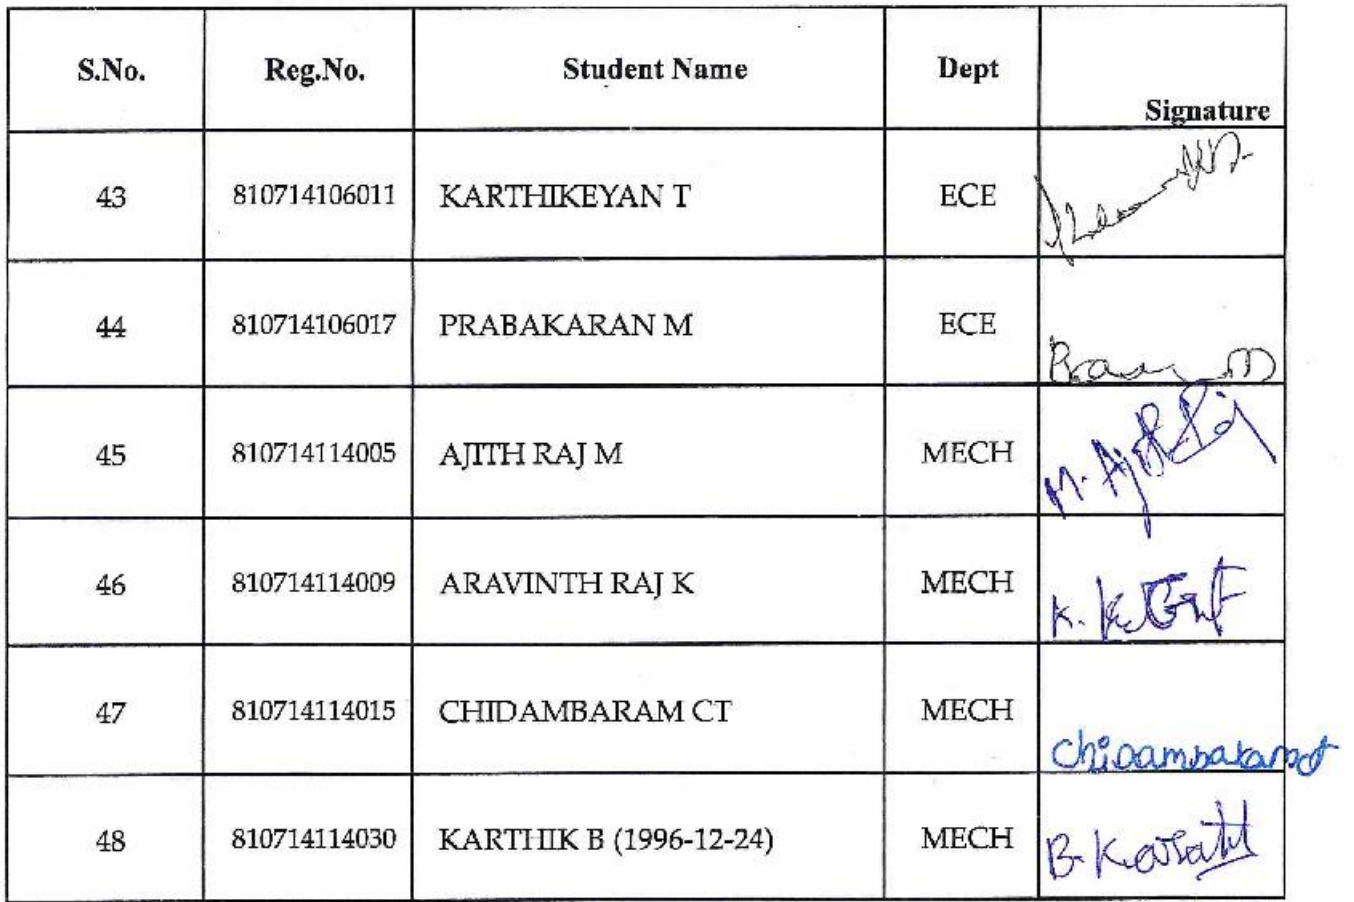 S.No. Reg.No. Student Name Dept Signature
43 810714106011 KARTHIKEYAN T ECE
44 810714106017 PRABAKARAN M ECE
45 810714114005 AJITH RAJ M MECH M. Ajith Raj
46 810714114009 ARAVINTH RAJ K MECH
47 810714114015 CHIDAMBARAM CT MECH Chidambaramct
48 810714114030 KARTHIK B (1996-12-24) MECH B. Karathi